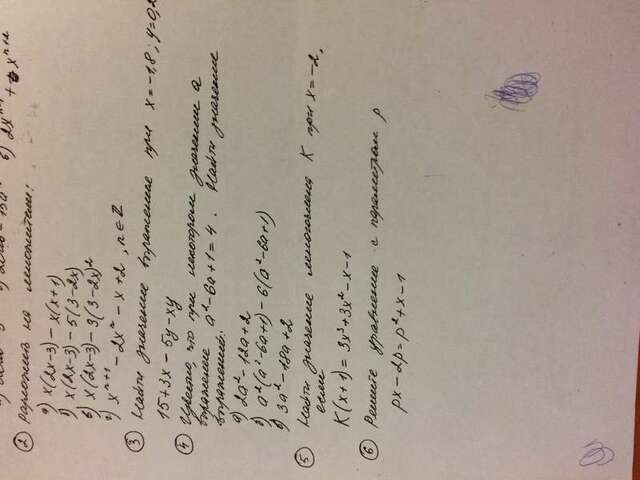 ② Разложить на множители:
а) x(2x-3) - x(x+1)
б) x(2x-3) - 5(3-2x)
в) x(2x-3) - 3(3-2x)²
г) xⁿ⁺¹ - 2xⁿ - x + 2, n ∈ Z
③ Найти значение выражение при x = -1,8; y = 0,
15 + 3x - 5y - xy
④ Известно, что при некотором значении a
выражение a² - 6a + 1 = 4. Найти значение
выражений:
а) 2a² - 12a + 2
б) a²(a² - 6a + 1) - 6(a² - 6a + 1)
в) 3a² - 18a + 2
⑤ Найти значение многочлена K при x = -2,
если
K(x+1) = 3x³ + 3x² - x - 1
⑥ Решите уравнение с параметром p
px - 2p = p² + x - 1